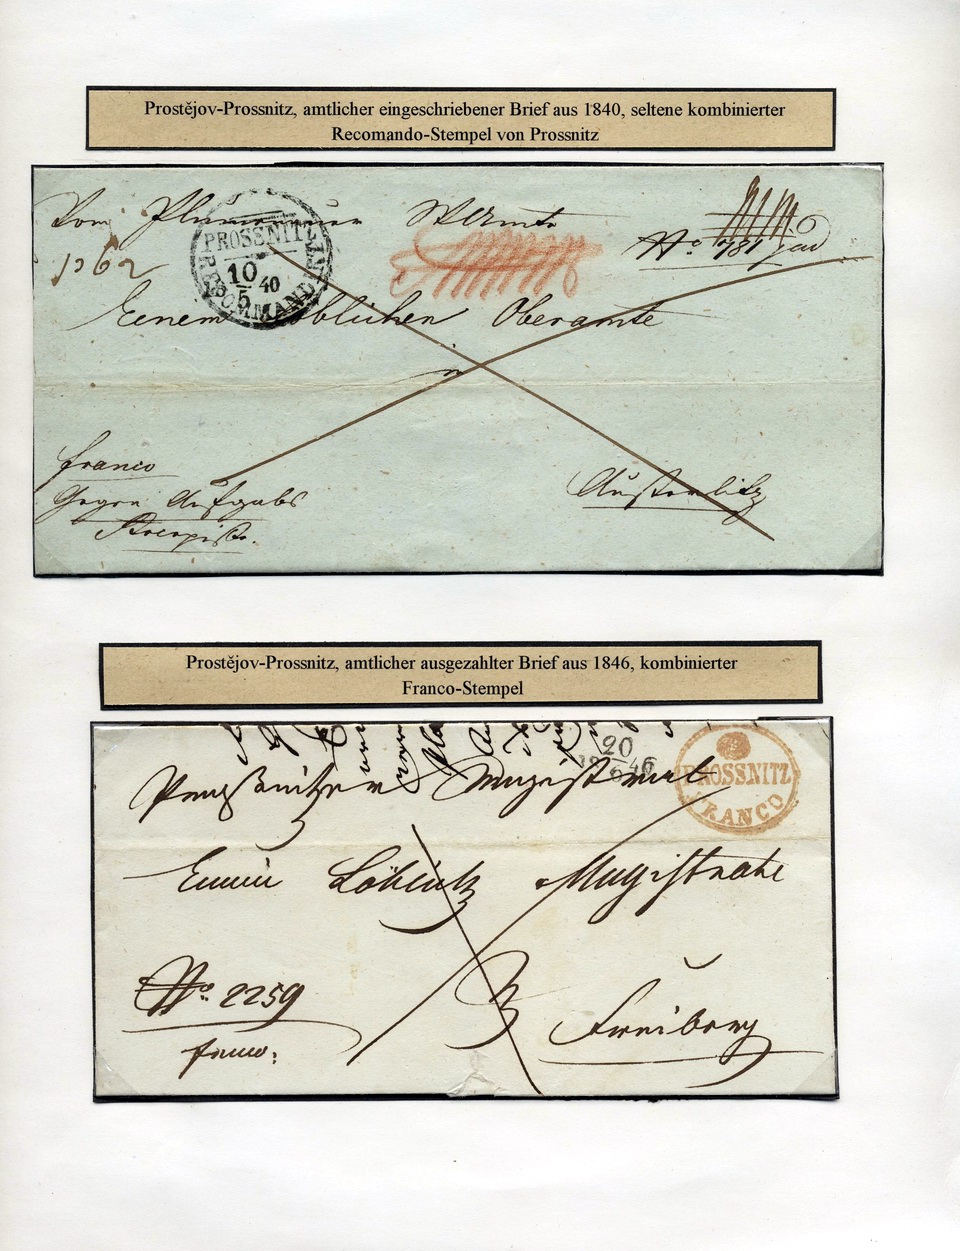 Prostějov-Prossnitz, amtlicher eingeschriebener Brief aus 1840, seltene kombinierter
Recomando-Stempel von Prossnitz
Vom
No 781
1362
PROSSNITZ
10
5 40
RECOMMANDIRT
Löblichen Oberamte
in
franco
Gegen Aufgabs
Austerlitz
Prostějov-Prossnitz, amtlicher ausgezahlter Brief aus 1846, kombinierter
Franco-Stempel
20
6 46
PROSSNITZ
FRANCO
Magistrat
Löblich Magistrate
No 2259
franco
Freiberg